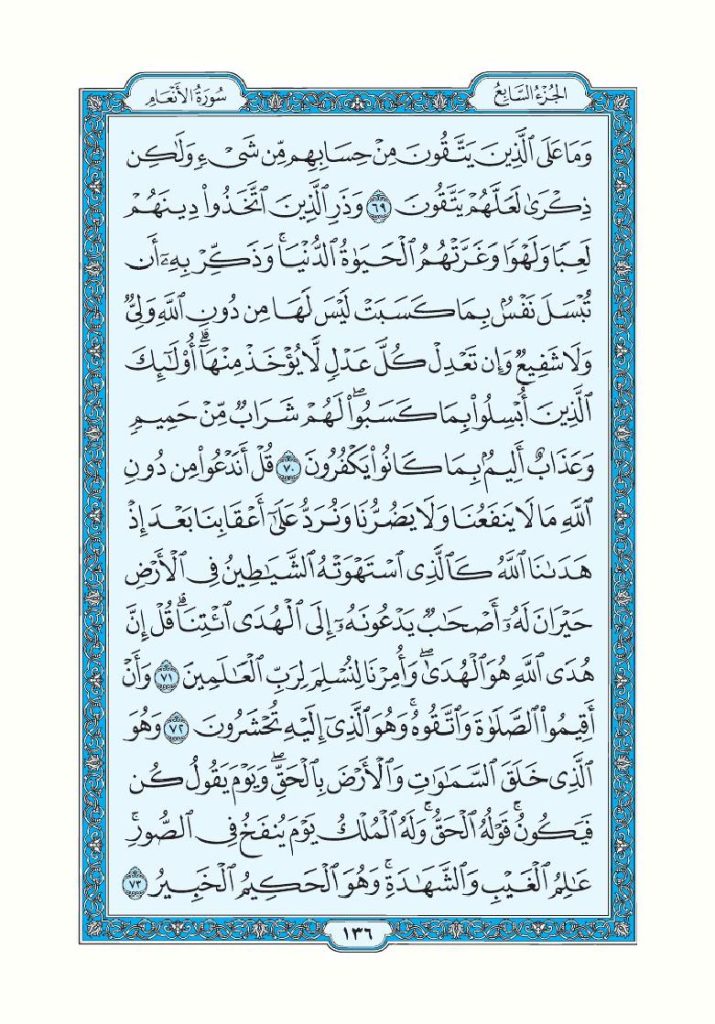 الجزء السابع
سورة الأنعام
وَمَا عَلَى ٱلَّذِينَ يَتَّقُونَ مِنْ حِسَابِهِم مِّن شَىْءٍ وَلَٰكِن
ذِكْرَىٰ لَعَلَّهُمْ يَتَّقُونَ ٦٩ وَذَرِ ٱلَّذِينَ ٱتَّخَذُوا۟ دِينَهُمْ
لَعِبًا وَلَهْوًا وَغَرَّتْهُمُ ٱلْحَيَوٰةُ ٱلدُّنْيَا ۚ وَذَكِّرْ بِهِۦٓ أَن
تُبْسَلَ نَفْسٌۢ بِمَا كَسَبَتْ لَيْسَ لَهَا مِن دُونِ ٱللَّهِ وَلِىٌّ
وَلَا شَفِيعٌ وَإِن تَعْدِلْ كُلَّ عَدْلٍ لَّا يُؤْخَذْ مِنْهَآ ۗ أُو۟لَٰٓئِكَ
ٱلَّذِينَ أُبْسِلُوا۟ بِمَا كَسَبُوا۟ ۖ لَهُمْ شَرَابٌ مِّنْ حَمِيمٍ
وَعَذَابٌ أَلِيمٌۢ بِمَا كَانُوا۟ يَكْفُرُونَ ٧٠ قُلْ أَنَدْعُوا۟ مِن دُونِ
ٱللَّهِ مَا لَا يَنفَعُنَا وَلَا يَضُرُّنَا وَنُرَدُّ عَلَىٰٓ أَعْقَابِنَا بَعْدَ إِذْ
هَدَىٰنَا ٱللَّهُ كَٱلَّذِى ٱسْتَهْوَتْهُ ٱلشَّيَٰطِينُ فِى ٱلْأَرْضِ
حَيْرَانَ لَهُۥٓ أَصْحَٰبٌ يَدْعُونَهُۥٓ إِلَى ٱلْهُدَى ٱئْتِنَا ۗ قُلْ إِنَّ
هُدَى ٱللَّهِ هُوَ ٱلْهُدَىٰ ۖ وَأُمِرْنَا لِنُسْلِمَ لِرَبِّ ٱلْعَٰلَمِينَ ٧١ وَأَنْ
أَقِيمُوا۟ ٱلصَّلَوٰةَ وَٱتَّقُوهُ ۚ وَهُوَ ٱلَّذِىٓ إِلَيْهِ تُحْشَرُونَ ٧٢ وَهُوَ
ٱلَّذِى خَلَقَ ٱلسَّمَٰوَٰتِ وَٱلْأَرْضَ بِٱلْحَقِّ ۖ وَيَوْمَ يَقُولُ كُن
فَيَكُونُ ۚ قَوْلُهُ ٱلْحَقُّ ۚ وَلَهُ ٱلْمُلْكُ يَوْمَ يُنفَخُ فِى ٱلصُّورِ ۚ
عَٰلِمُ ٱلْغَيْبِ وَٱلشَّهَٰدَةِ ۚ وَهُوَ ٱلْحَكِيمُ ٱلْخَبِيرُ ٧٣
١٣٦